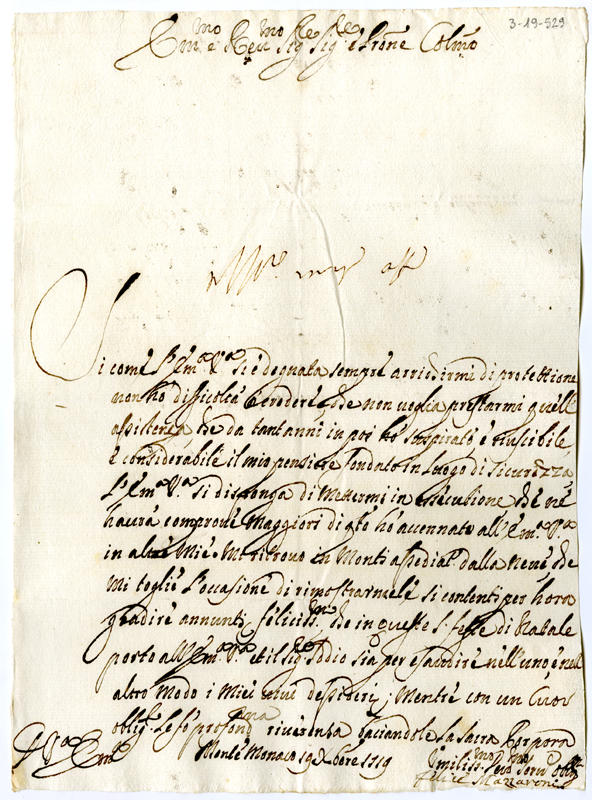 3-19-529
Em.mo e Rev.mo Sig.re Sig.re e Prone Colmo
Si come l'Em.a V.a si è degnata sempre arridirmi di protettione
non ho dificolta Crederè che non voglia prestarmi quell'
assistenza che da tant anni in poi ho sospirato è riuscibile,
è considerabile il mio pensiere fondato in luogo di sicurezza
l'Em.a V.a si disponga di Mettermi in esecutione che nè
haurà comprove Maggiori di q.to ho accennato all'Em.a V.a
in altre Mie. Mi ritrovo in Monti assediat. dalla neve che
Mi toglie l'occasione di rimostrarmele si contenti per hora
gradire annunti feliciss.mi che in queste S.e feste di Natale
porto all'Em.a V.a et il Sig.e Iddio sia per esaudire nell'uno è nell
altro Modo i Miei desiderj; Mentre con un Cuor
oblig.to le fò profond.ma riverenza baciandole la Sacra Porpora
Monte Monaco 19 Xbre 1719
D V.a Em.a
Umiliss.mo Dev.mo Serv.
Felice